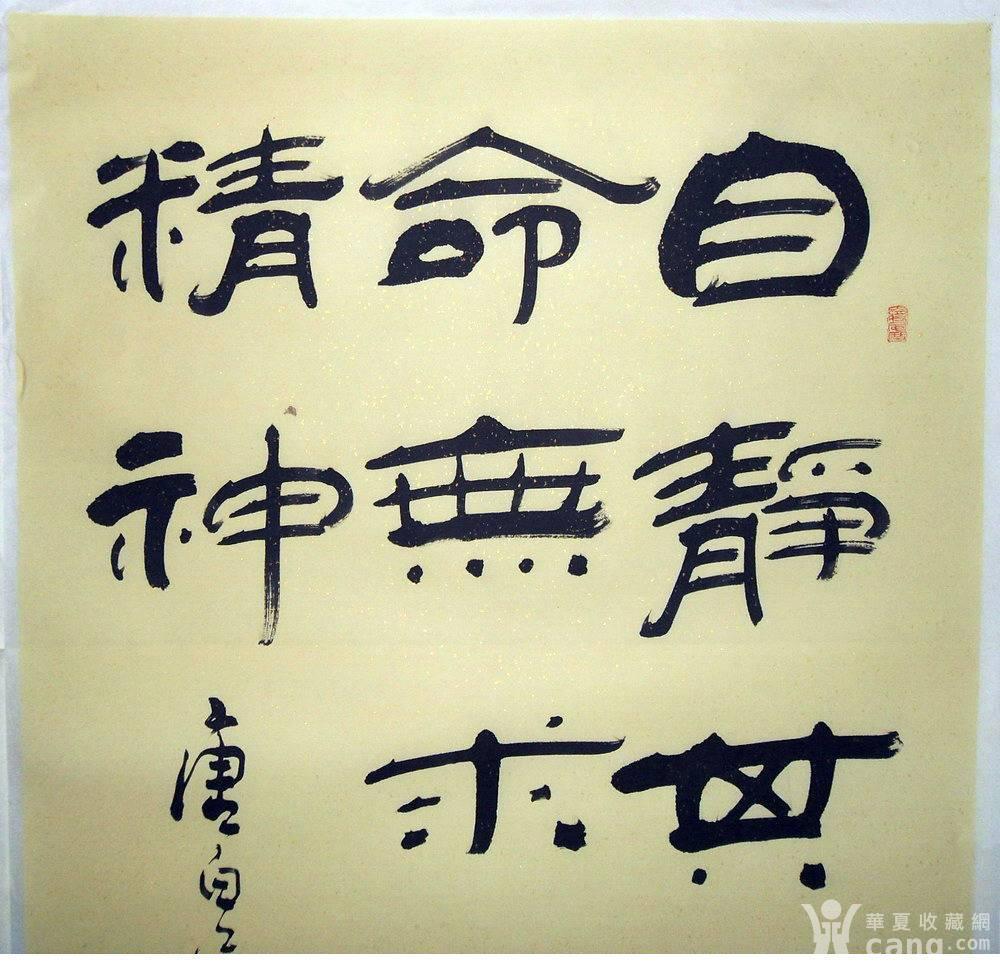 自靜其
命無求
精神
唐白
華夏收藏網
cang.com